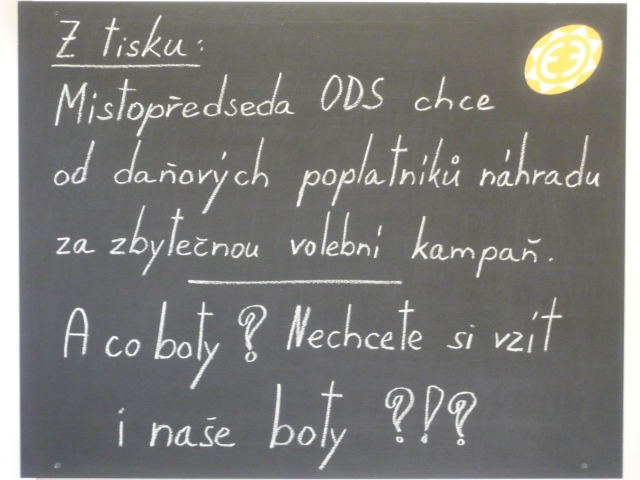 Z tisku:
Mistopředseda ODS chce
od daňových poplatníků náhradu
za zbytečnou volební kampaň.
A co boty? Nechcete si vzít
i naše boty ?!?